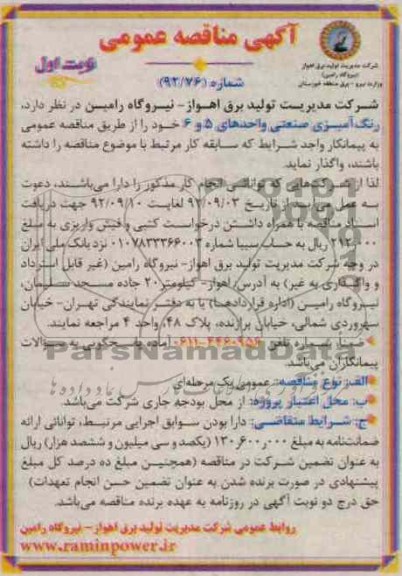 آگهی مناقصه عمومی
نوبت اول
شماره (۹۲/۷۶)
شرکت مدیریت تولید برق اهواز
(نیروگاه رامین)
وزارت نیرو - برق منطقه خوزستان
شرکت مدیریت تولید برق اهواز- نیروگاه رامین در نظر دارد،
رنگ آمیزی صنعتی واحدهای ۵ و ۶ خود را از طریق مناقصه عمومی
به پیمانکار واجد شرایط که سابقه کار مرتبط با موضوع مناقصه را داشته
باشند، واگذار نماید.
لذا از شرکت‌های که توانائی انجام کار مذکور را دارا می‌باشند، دعوت
به عمل می‌آید از تاریخ ۹۲/۰۹/۰۳ لغایت ۹۲/۰۹/۱۰ جهت دریافت
اسناد مناقصه با همراه داشتن درخواست کتبی و فیش واریزی به مبلغ
ریال به حساب سیبا شماره ۰۱۰۷۸۳۳۳۶۶۰۰۳ نزد بانک ملی ایران
در وجه شرکت مدیریت تولید برق اهواز- نیروگاه رامین (غیر قابل استرداد
و واگذاری به غیر) به آدرس: اهواز- کیلومتر ۲۰ جاده مسجد سلیمان،
نیروگاه رامین (اداره قراردادها) یا به دفتر نمایندگی تهران- خیابان
سهروردی شمالی، خیابان برازنده، پلاک ۴۸، واحد ۴ مراجعه نمایند.
ضمنا، شماره تلفن آماده پاسخگویی به سوالات
پیمانکاران می‌باشد.
الف: نوع مناقصه: عمومی یک مرحله‌ای
ب: محل اعتبار پروژه: از محل بودجه جاری شرکت می‌باشد.
ج: شرایط متقاضی: دارا بودن سوابق اجرایی مرتبط، توانائی ارائه
ضمانت‌نامه به مبلغ ۱۳۰,۶۰۰,۰۰۰ (یکصد و سی میلیون و ششصد هزار) ریال
به عنوان تضمین شرکت در مناقصه (همچنین مبلغ ده درصد کل مبلغ
پیشنهادی در صورت برنده شدن به عنوان تضمین حسن انجام تعهدات)
حق درج دو نوبت آگهی در روزنامه به عهده برنده مناقصه می‌باشد.
روابط عمومی شرکت مدیریت تولید برق اهواز - نیروگاه رامین
www.raminpower.ir
ParsNamadData